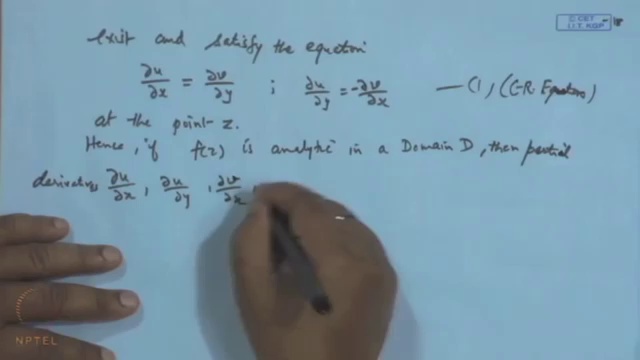 © CET
I.I.T. KGP
exist and satisfy the equation
∂u/∂x = ∂v/∂y ; ∂u/∂y = -∂v/∂x — (1) (C-R. Equations)
at the point z.
Hence, if f(z) is analytic in a Domain D, then partial
derivatives ∂u/∂x, ∂u/∂y, ∂v/∂x,
NPTEL